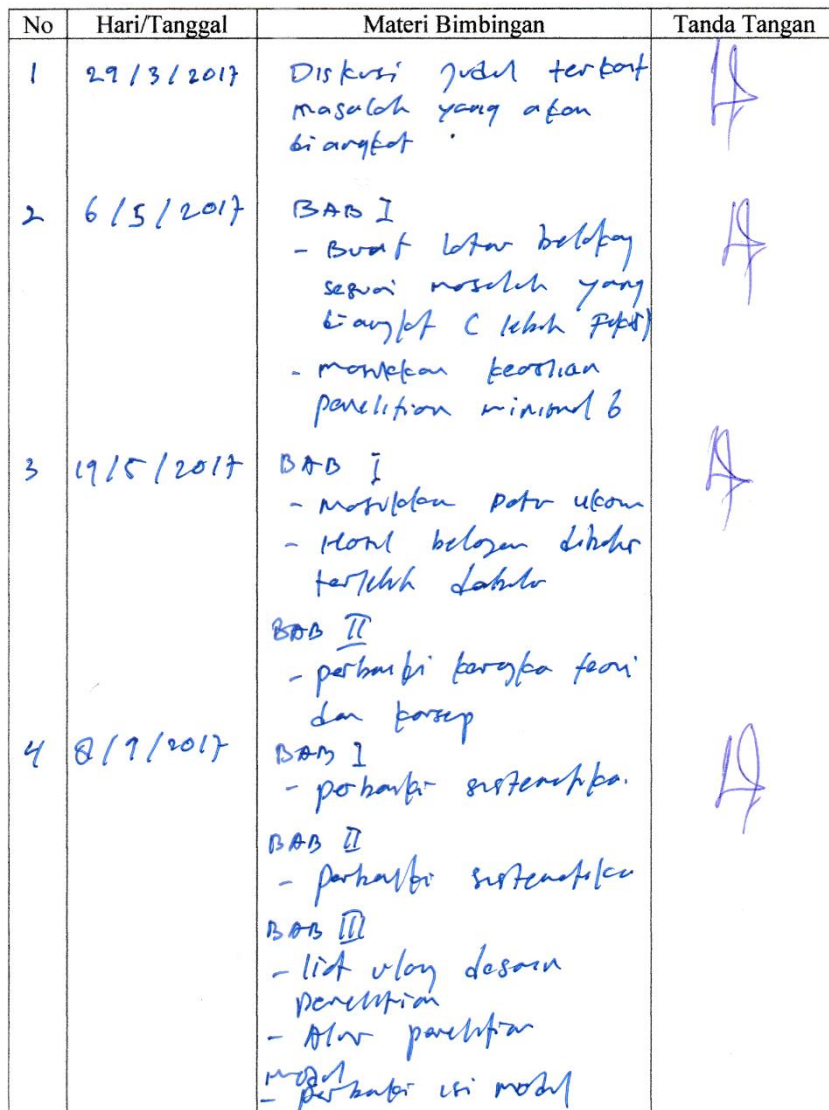 No Hari/Tanggal Materi Bimbingan Tanda Tangan
1 29/3/2017 Diskusi judul terkait
masalah yang akan
diangkat.
2 6/5/2017 BAB I
- Buat latar belakang
sesuai masalah yang
diangkat (lebih Fokus)
- masukkan keaslian
penelitian minimal 6
3 19/5/2017 BAB I
- Masukkan Data ukom
- Hasil belajar
terlebih dahulu
BAB II
- perbaiki kerangka teori
dan konsep
4 8/9/2017 BAB I
- perbaiki sistematika.
BAB II
- perbaiki sistematika
BAB III
- liat ulang desain
penelitian
- Alur penelitian
modul
- perbaiki isi modul